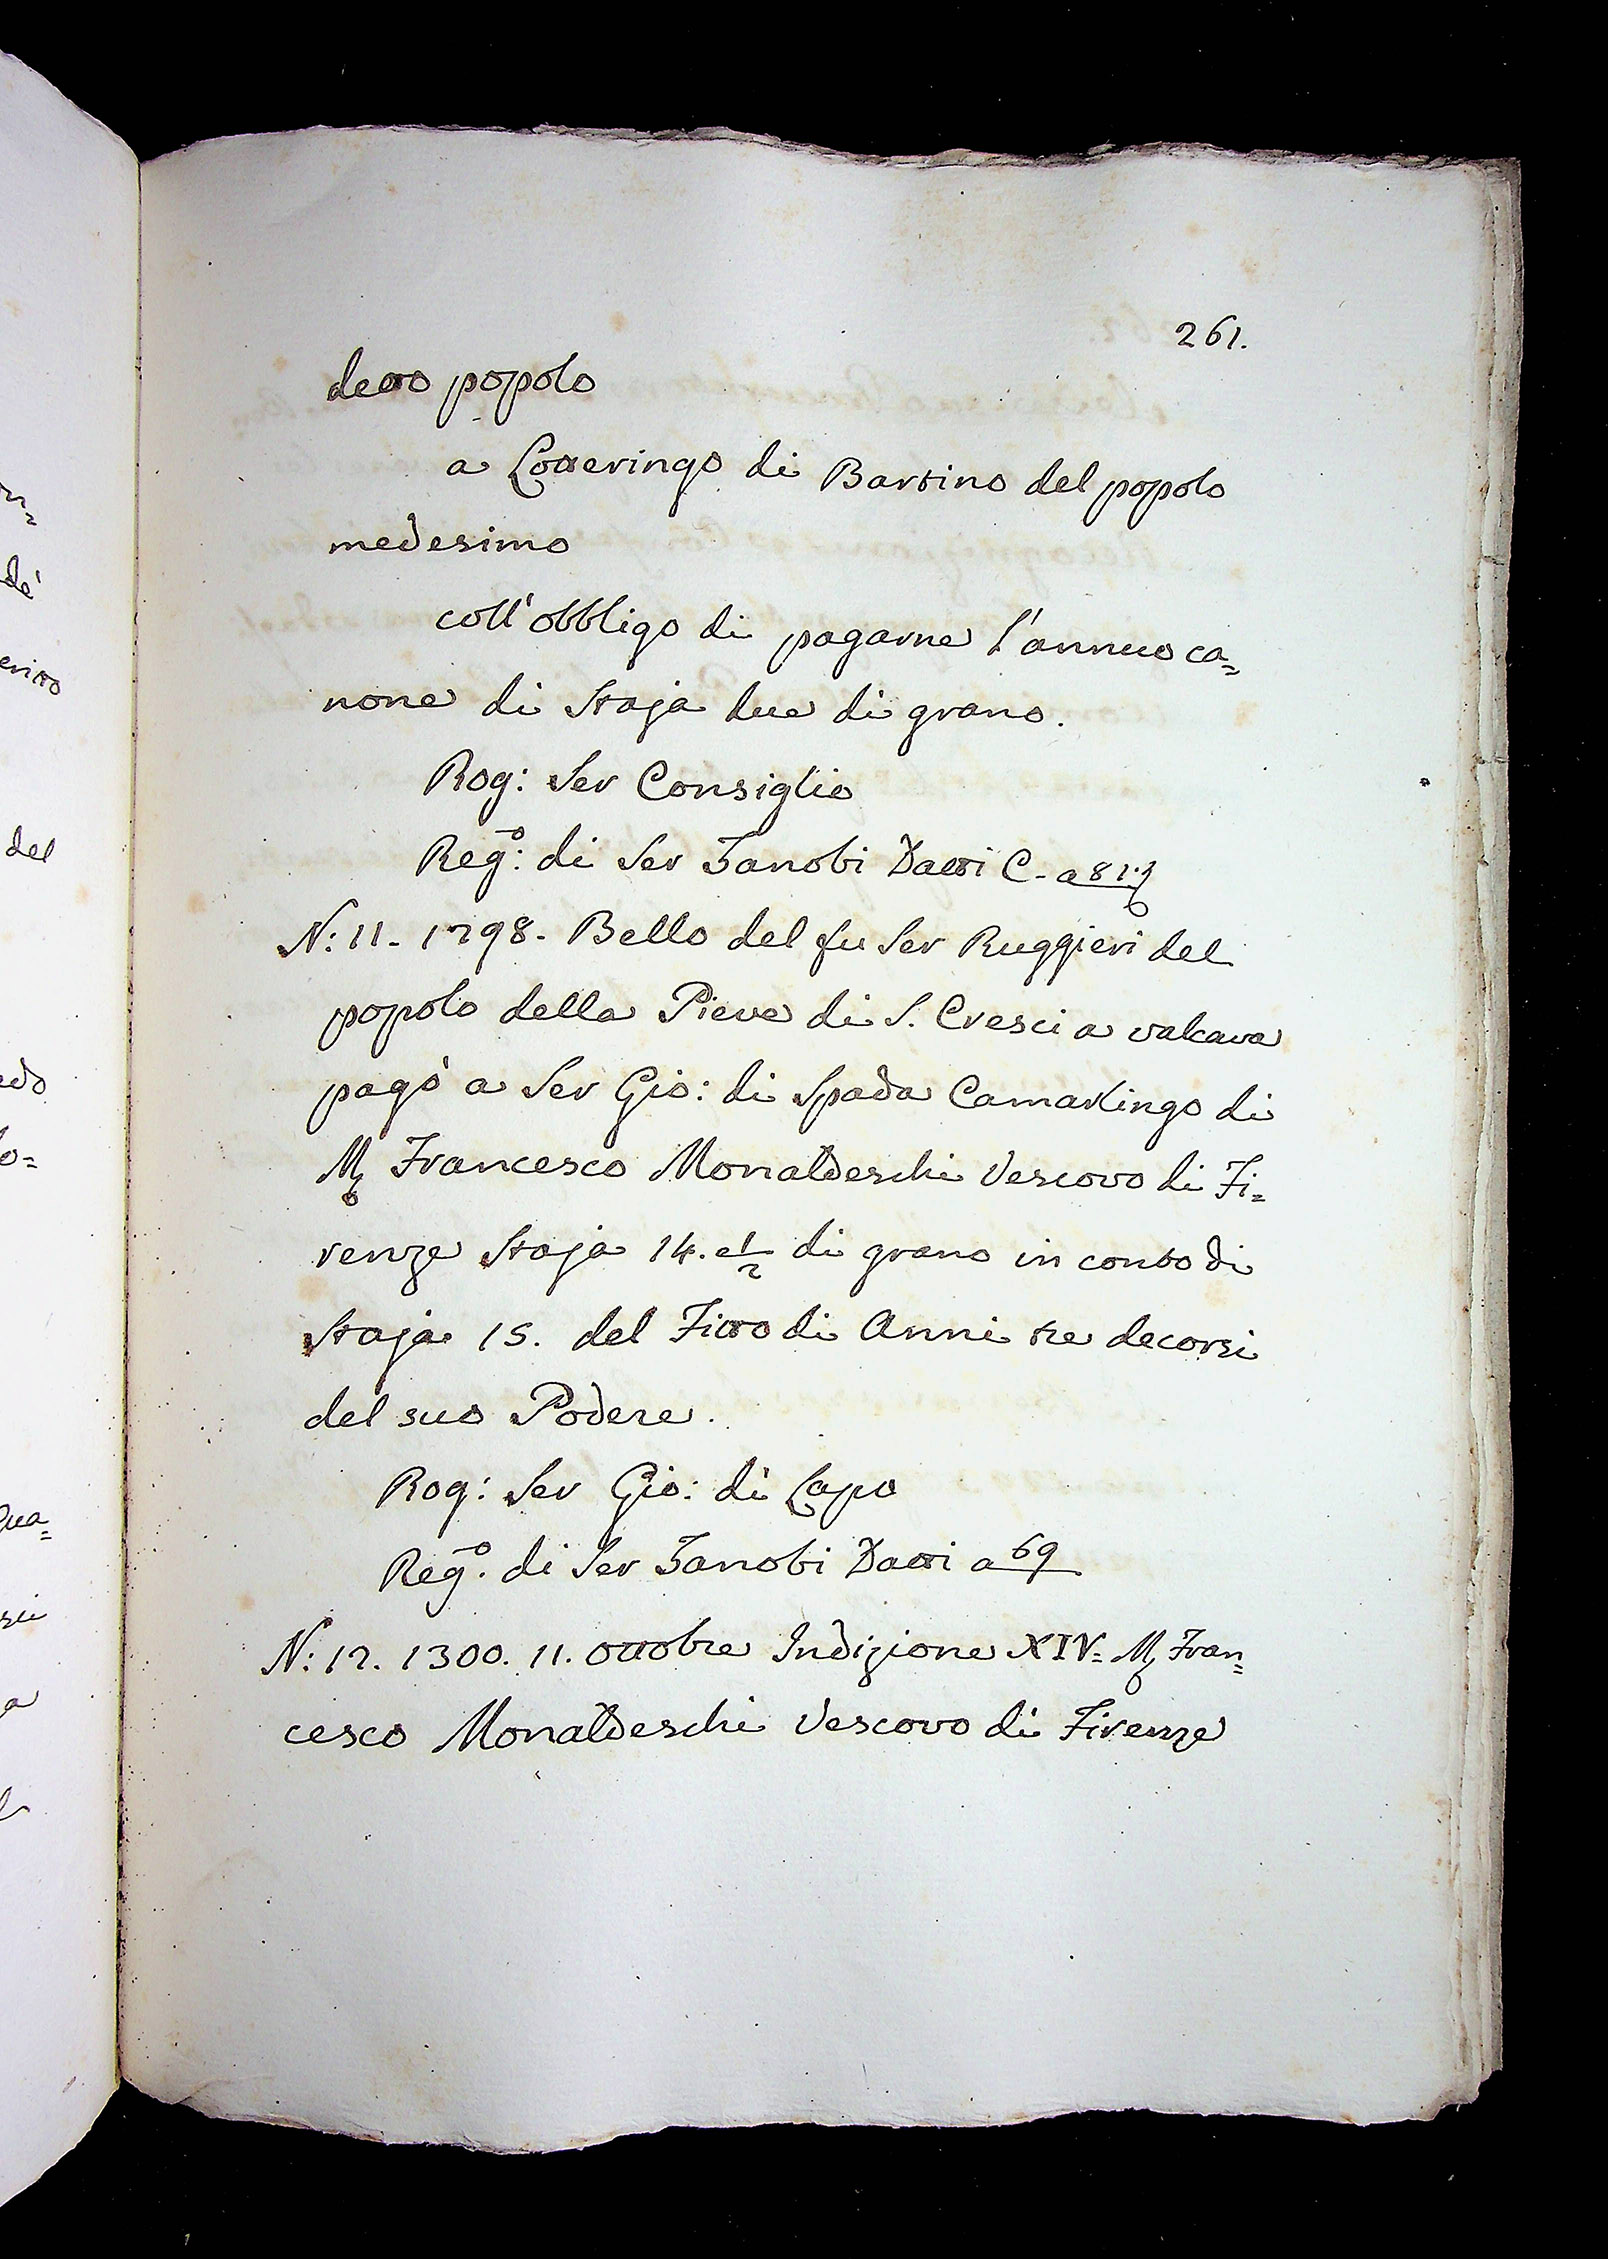 261.
detto popolo
a Lotteringo di Bartino del popolo
medesimo
coll'obbligo di pagarne l'annuo ca=
none di Staja due di grano.
Rog: Ser Consiglio
Reg:º di Ser Zanobi Datti C. a 81.
N: 11. 1298. Bello del fu Ser Ruggieri del
popolo della Pieve di S. Cresci a valcava
pagò a Ser Gio: di Spada Camarlingo di
M. Francesco Monaldeschi Vescovo di Fi=
renze Staja 14. e 1/2 di grano in conto di
Staja 15. del Fitto di Anni tre decorsi
del suo Podere.
Rog: Ser Gio: di Lapo
Reg.º di Ser Zanobi Datti a 69
N: 12. 1300. 11. Ottobre Indizione XIV= M. Fran=
cesco Monaldeschi Vescovo di Firenze
del